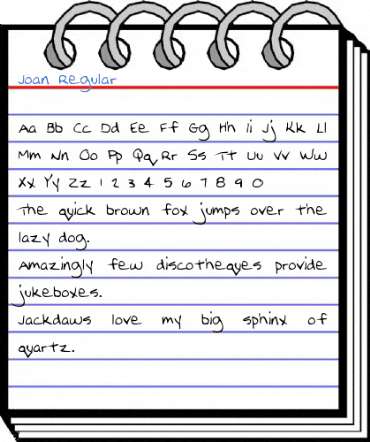 Joan Regular
Aa Bb Cc Dd Ee Ff Gg Hh Ii Jj Kk Ll
Mm Nn Oo Pp Qq Rr Ss Tt Uu Vv Ww
Xx Yy Zz 1 2 3 4 5 6 7 8 9 0
The quick brown fox jumps over the
lazy dog.
Amazingly few discotheques provide
jukeboxes.
Jackdaws love my big sphinx of
quartz.